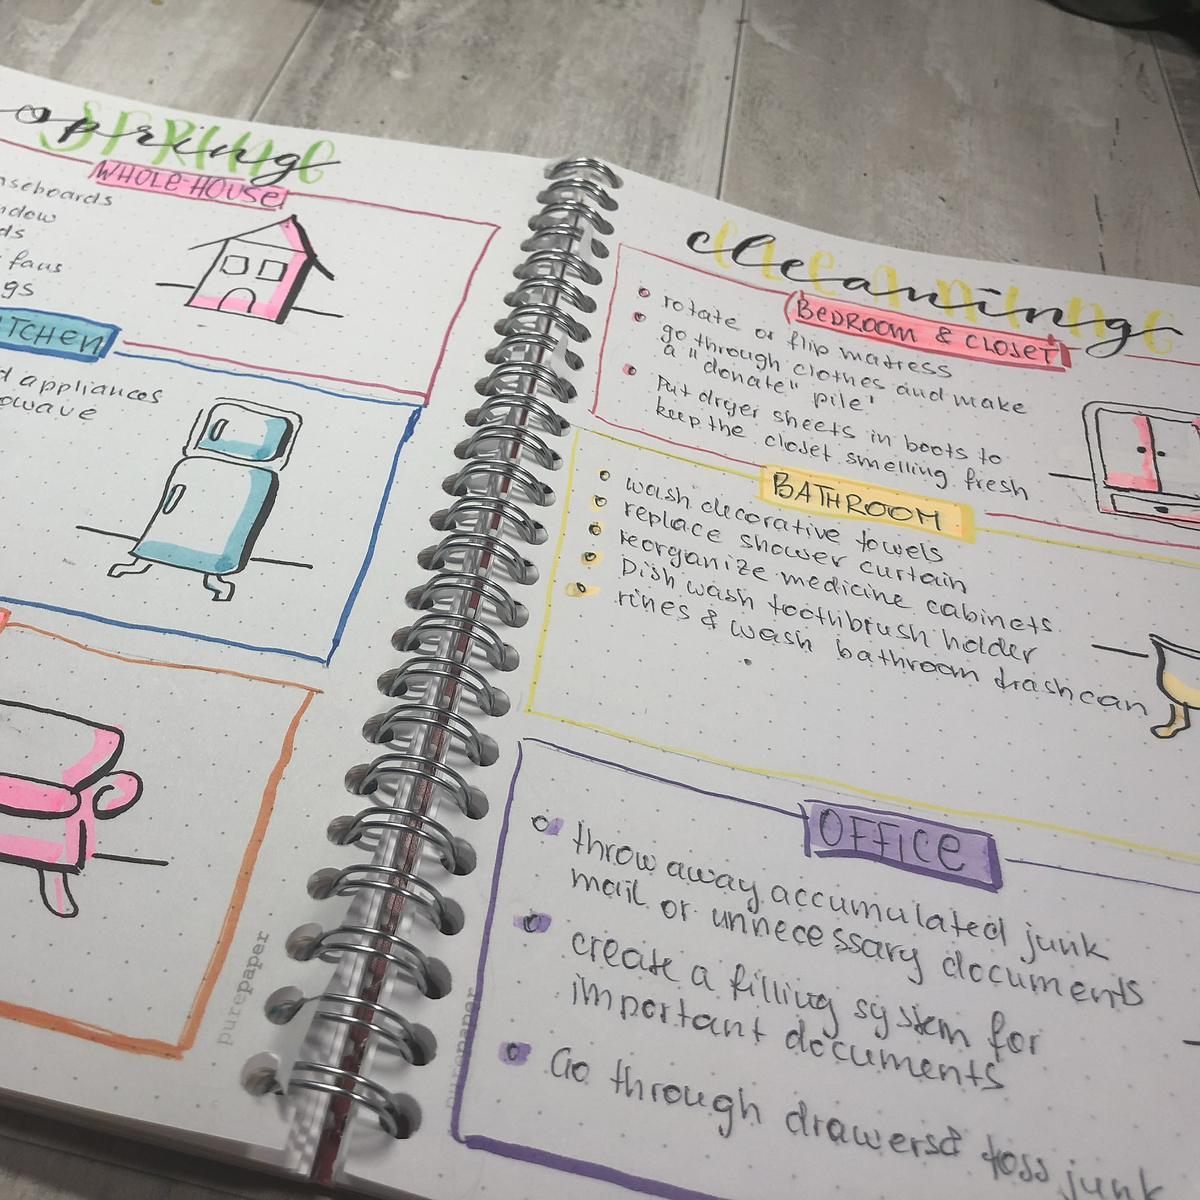 spring
SPRING
WHOLE HOUSE
aseboards
ndow
ds
faus
gs
TCHEN
d appliances
owave
purepaper
cleaning
CLEANING
BEDROOM & CLOSET
rotate or flip matress
go through clothes and make
a "donate" pile'
Put dryer sheets in boots to
keep the closet smelling fresh
BATHROOM
wash decorative towels
replace shower curtain
reorganize medicine cabinets
Dish wash toothbrush holder
rines & wash bathroom trashcan
OFFICE
throw away accumulated junk
mail or unnecessary documents
create a filling system for
important documents
Go through drawers& toss junk
purepaper